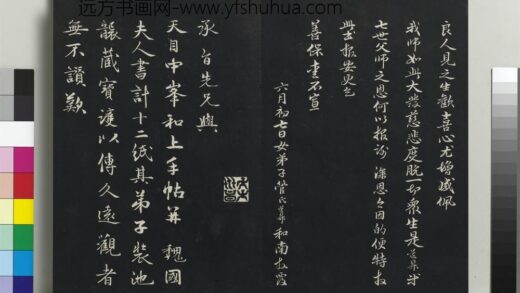 远方书画网: www.yfshuhua.com
良人見之生歡喜心尤增感佩
我師如此大發慈悲度脫一切衆生是道昇
七世父師之恩何以報謝 深恩今因的便特
此上報安更乞
善保重不宣
六月初七日女弟子管氏道昇和南拜覆
承旨先兄與
天目中峯和上手帖并 魏國
夫人書計十二紙其弟子裝池
韞藏寶護以傳久遠觀者
無不讚歎